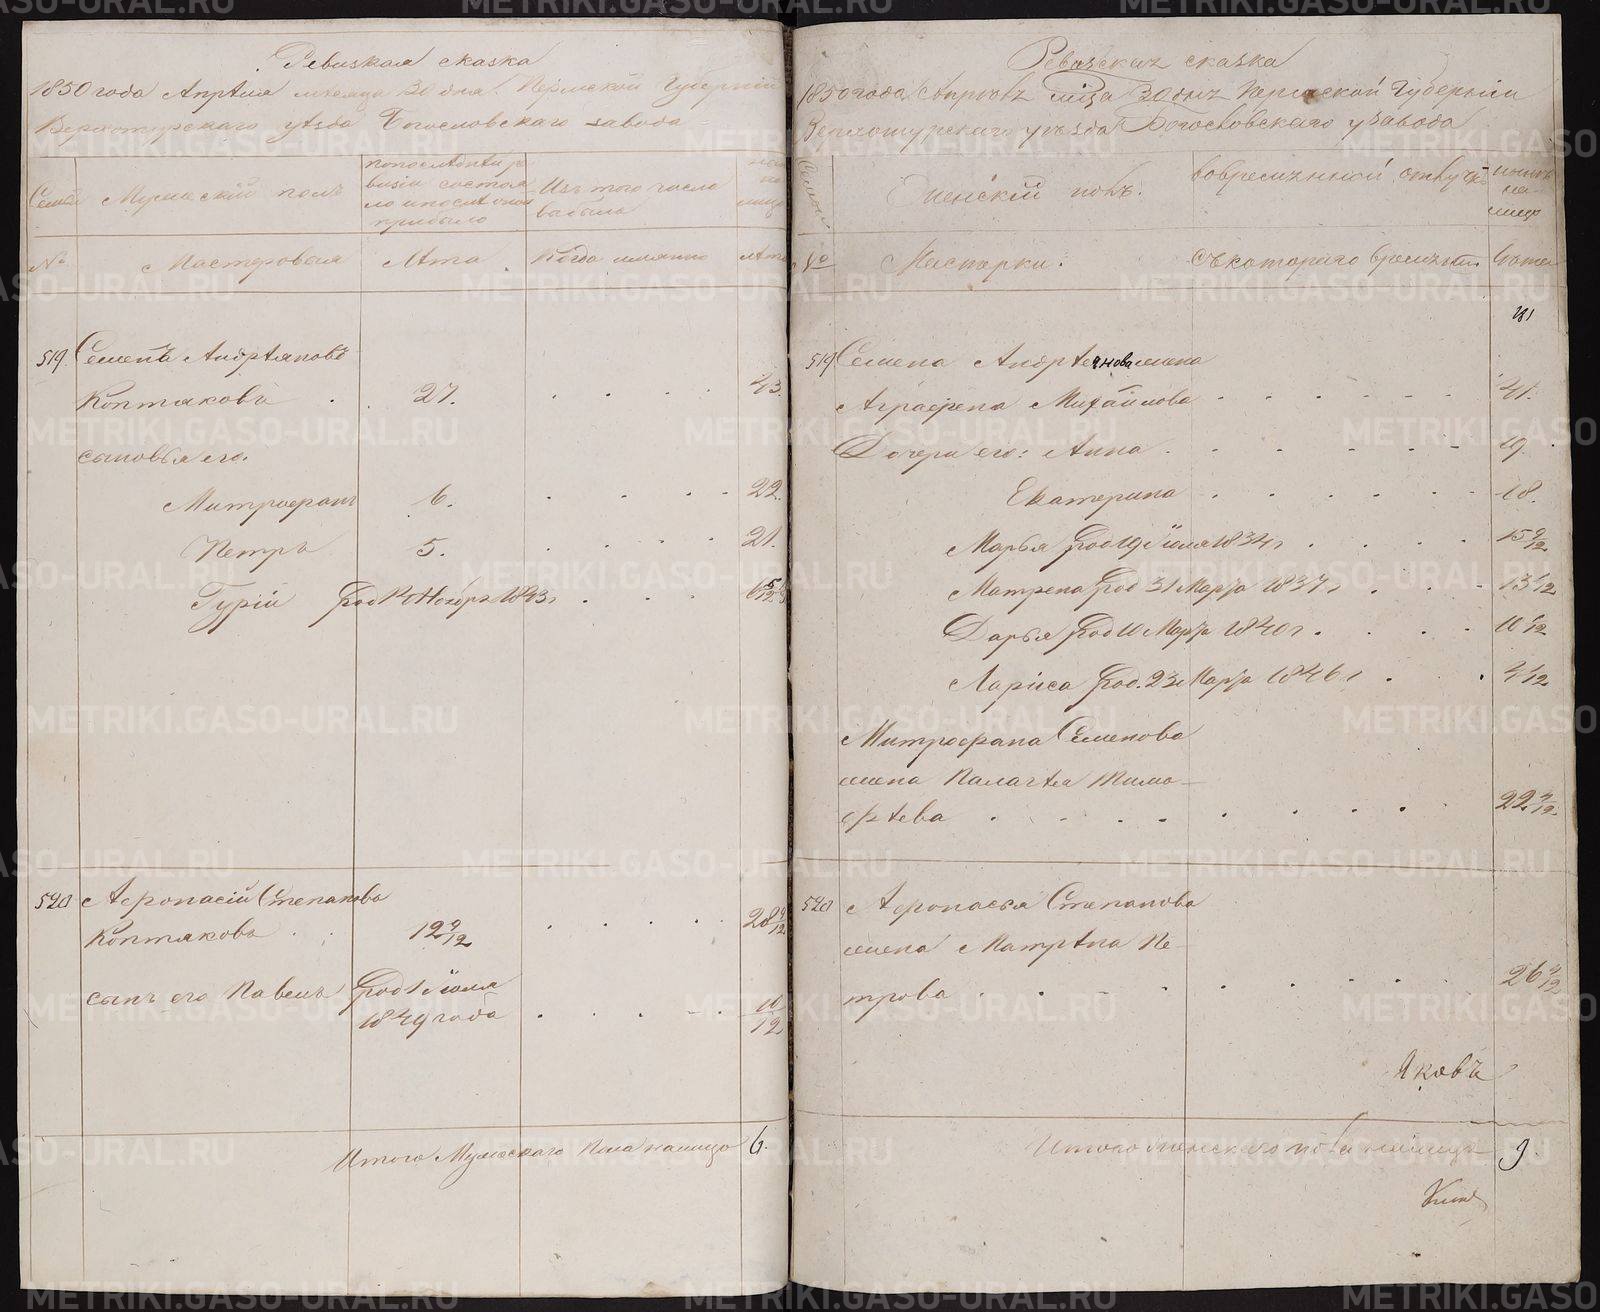 Ревизкая сказка
1850 года Апреля месяца 30 дня. Пермской Губернии
Верхотурскаго уѣзда Богословскаго завода
Семьи
Мужескій полъ
по последней ревизіи состояло и после оной прибыло
Изъ того числа выбыло
ныне на лицо
№
Мастеровыя
Лѣта
Когда имянно
Лѣта
519 Семенъ Андрѣяновъ
Коптяковъ . . 27. . . . . 43.
сыновья его.
Митрофанъ 6. . . . . 22.
Петръ 5. . . . . 21.
Гурій род. Ноября 1843 г. . . . 6 5/12
520 Афонасій Степановъ
Коптяковъ . . 12 9/12 . . . . 28
сынъ его Павелъ род 1 Іюля
1849 года . . . . 10/12
Итого Мужескаго Пола налицо 6.
Ревизская сказка
1850 года Апреля м-ца 30 дня Пермской Губерніи
Верхотурскаго уезда Богословскаго завода
Семьи
Женскій полъ.
во временной отлучке
ныне на лицо
№
Мастерки.
Съ котораго времени
Лѣта
519 Семена Андреянова жена
Аграфена Михайлова . . . . . . 41.
Дочери его: Анна . . . . . . 19.
Екатерина . . . . . . 18.
Марья род 19 Іюля 1834 г . . . . 15 9/12
Матрена род 31 Марта 1837 г . . . 13 1/12
Дарья род 10 Марта 1840 г . . . 10 1/12
Лариса род. 23 Марта 1846 г . . 4 1/12
Митрофана Семенова
жена Палагѣя Тимо-
фѣева . . . . . . . . 22
520 Афонасья Степанова
жена Матрѣна Пе-
трова . . . . . . . . 26
Яковъ
Итого женскаго пола налицо 9.